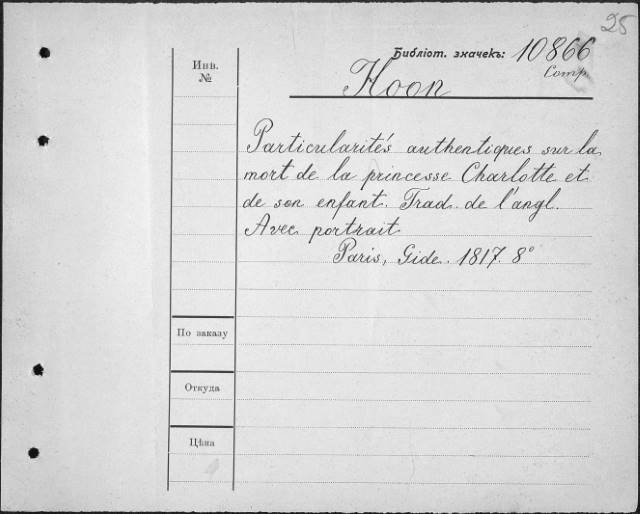 25
Библіот. значекъ: 10866
Comp.
Инв.
№
Hoon
Particularités authentiques sur la
mort de la princesse Charlotte et
de son enfant. Trad. de l'angl.
Avec portrait
Paris, Gide. 1817. 8°
По заказу
Откуда
Цѣна